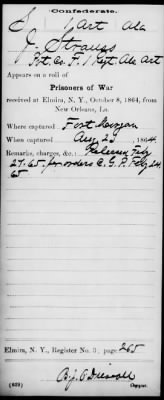 Confederate.
S 1 Art Ala
J Strauss
Pvt. Co. F. 1 Regt. Ala Art
Appears on a roll of
Prisoners of War
received at Elmira, N. Y., October 8, 1864, from
New Orleans, La.
Where captured Fort Morgan
When captured Aug 23, 1864
Remarks, charges, &c.: Released Feby
27. 65. per orders C. G. P. Feby 24.
65
Elmira, N. Y., Register No. 3; page 265
(639) B. J. O'Driscoll
Copyist.